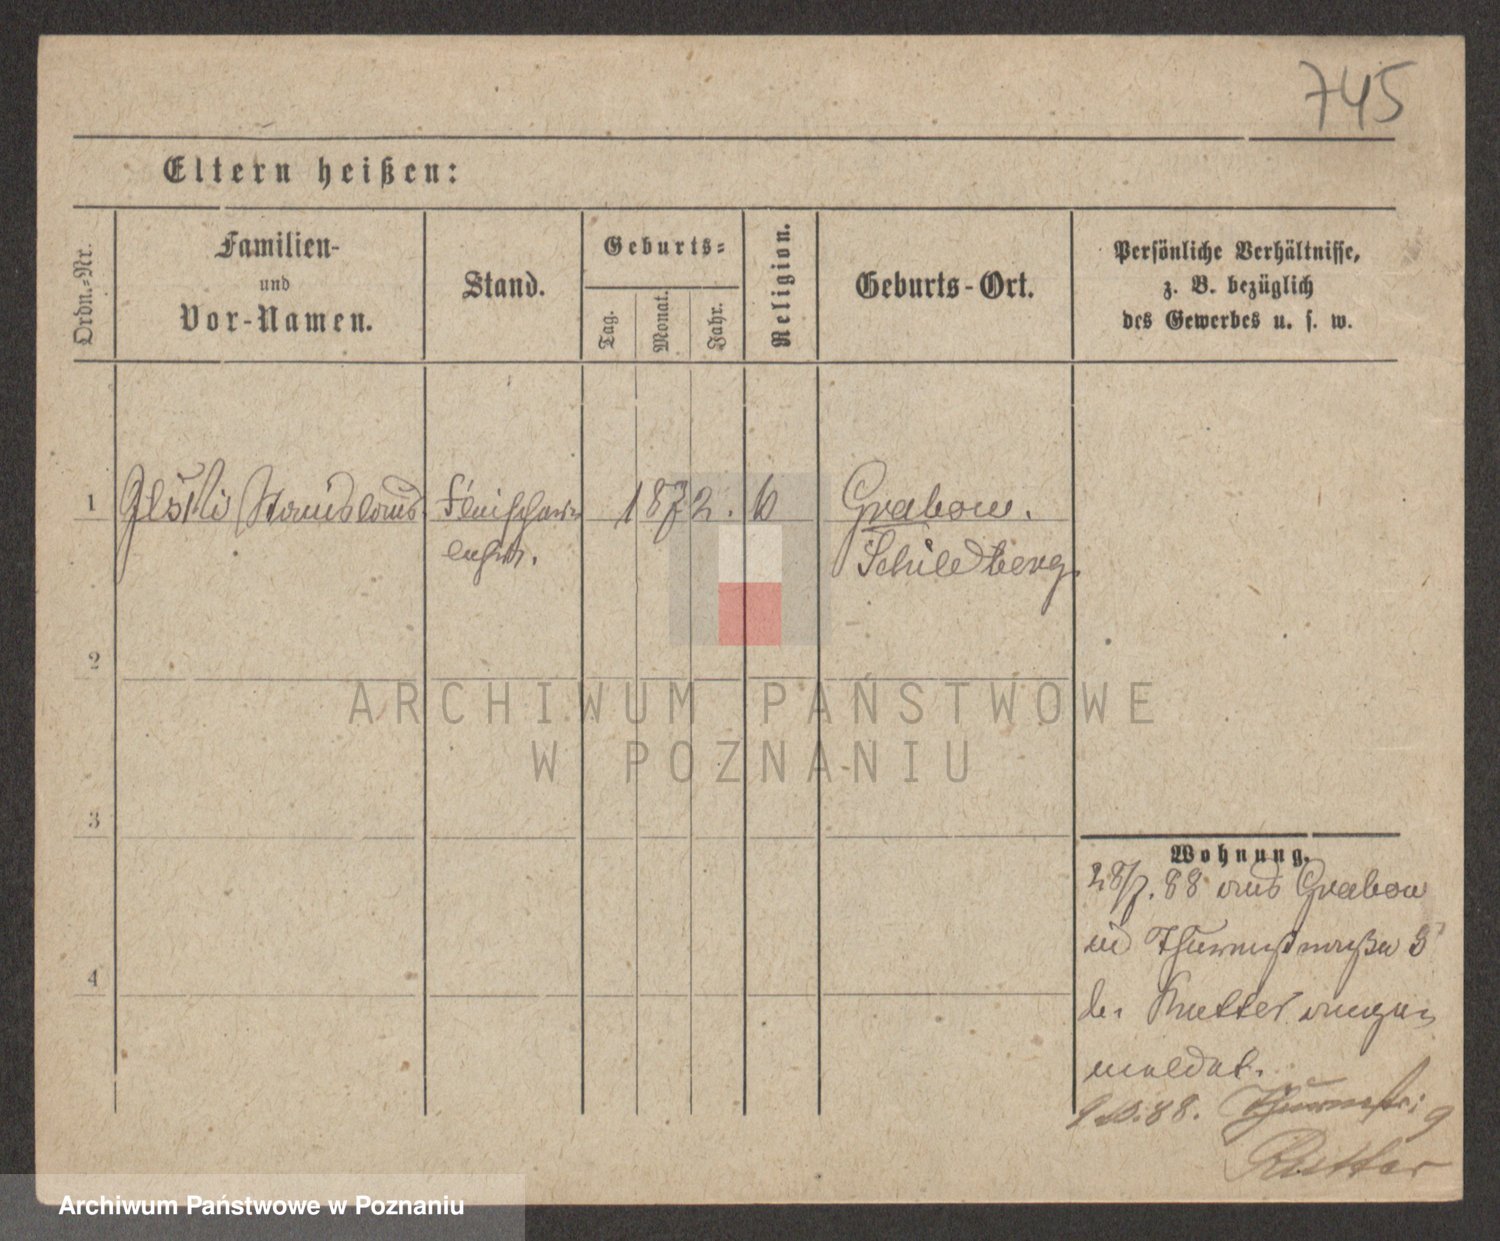 745
Eltern heißen:
Ordn.-Nr.
Familien-
und
Vor-Namen.
Stand.
Geburts-
Tag.
Monat.
Jahr.
Religion.
Geburts-Ort.
Persönliche Verhältnisse,
z. B. bezüglich
des Gewerbes u. s. w.
1 Stanislaus 1872. k Grabow.
Schildberg.
2
3
4
Wohnung.
28/7. 88 aus Grabow
Thurmstraße
bei
meldet.
88.
ARCHIWUM PAŃSTWOWE
W POZNANIU
Archiwum Państwowe w Poznaniu